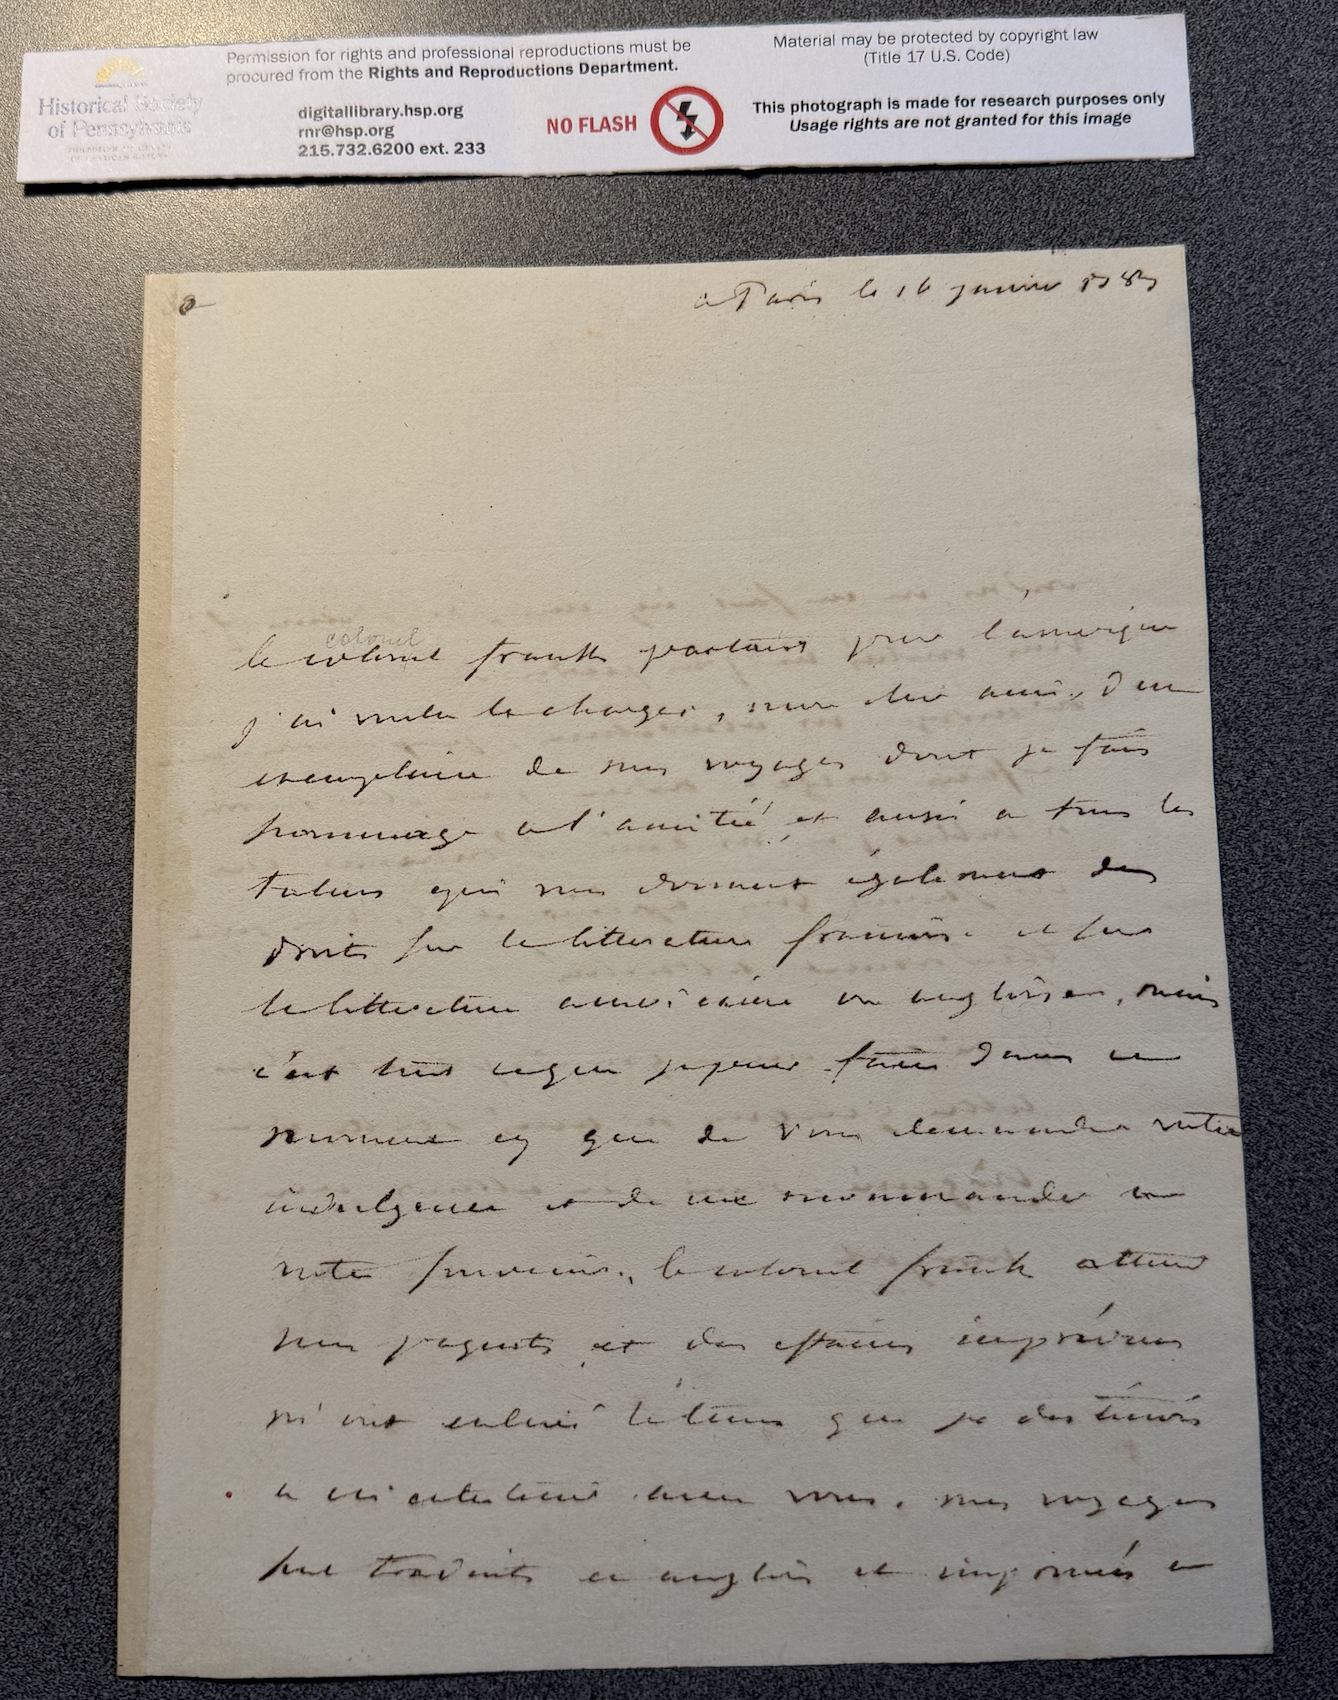 Permission for rights and professional reproductions must be
procured from the Rights and Reproductions Department.
Material may be protected by copyright law
(Title 17 U.S. Code)
Historical Society
of Pennsylvania
digitallibrary.hsp.org
rnr@hsp.org
215.732.6200 ext. 233
NO FLASH
This photograph is made for research purposes only
Usage rights are not granted for this image
a Paris le 16 janvier
colonel
le colonel frank partant pour l'amerique
j'ai voulu le charger, mon cher ami, d'un
exemplaire de mes voyages dont je fais
hommage a l'amitié et aussi a tous les
talens qui vous donnent également des
droits sur la litterature francoise et sur
la litterature americaine ou angloise, mais
c'est tout ce que je peux faire dans ce
moment cy que de vous demander votre
indulgence et de me recommander a
votre souvenir. le colonel frank attend
mes paquets et des affaires imprévues
m'ont enlevé le tems que je destinois
a m'entretenir avec vous. mes voyages
sont traduits en anglois et imprimés a